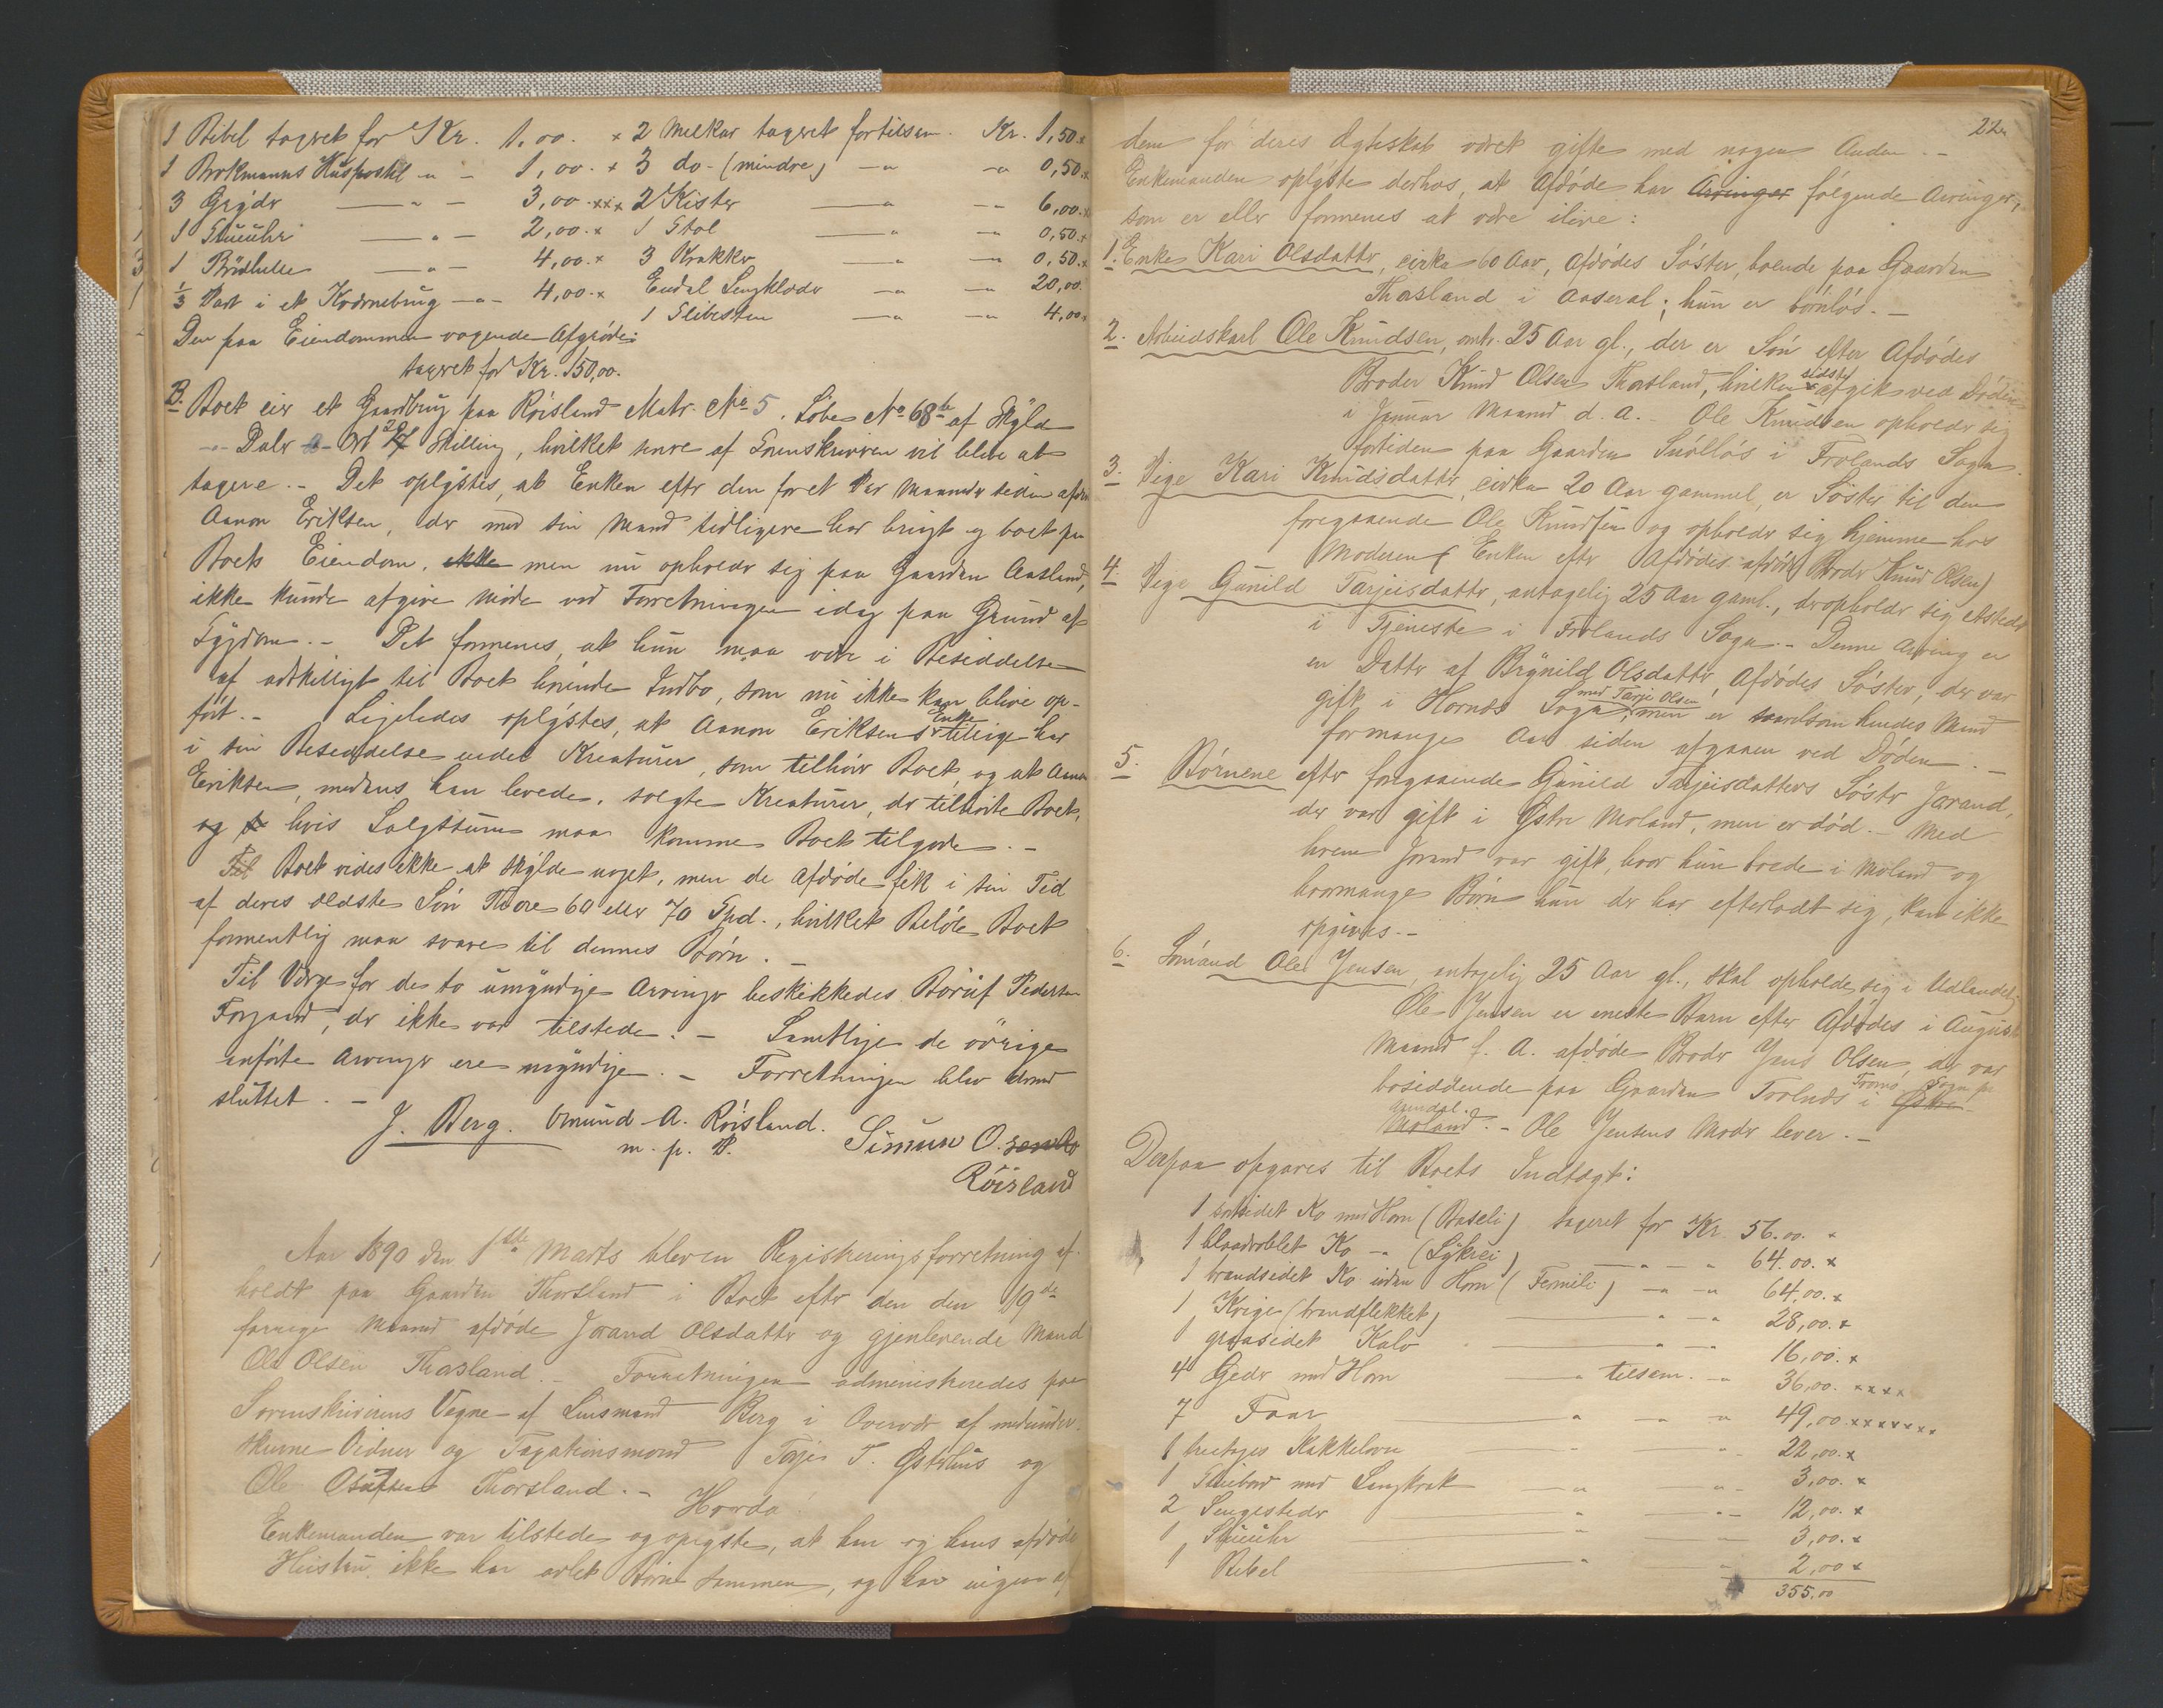 1 Bibel taxeret for Kr. 1,00. x 2 Melkar taxeret fortilsam. Kr. 1,50 x
1 Brokmanns Huspostil " - 1,00. x 3 do - (mindre) " " 0,50 x
3 Gryder " - 3,00 xxx 2 Kister " - 6,00. x
1 Stueuhr " - 2,00. x 1 Stol " - 0,50. x
1 " - 4,00. x 3 Krakker " - 0,50. x
1/3 Part i et Kværnebrug - " - 4,00. x Endel Sengklæder " - 20,00.
1 Slibesten " - " 4,00.
Den paa Eiendommen vagende Afgrøde:
taxeret for Kr. 150,00.
B. Boet eier et Gaardbrug paa Röisland Matr. No 5. Löbe No 68 b af Skyld
- Daler - Ort 27 Skilling, hvilket senere af Sorenskriveren vil blive at
taxere. - Det oplystes, at Enken efter den for et Par Maaneder siden afdøde
Aanon Eriksen, der med sin Mand tidligere har brugt og boet paa
Boets Eiendom, ikke men nu opholder sig paa Gaarden Aasland,
ikke kunde afgive Møde ved Forretningen idag paa Grund af
Sygdom. - Det formenes, at hun maa være i Besiddelse
af adskilligt til Boet hørende Indbo, som nu ikke kan blive op-
ført. - Ligeledes oplystes, at Aanon Eriksens Enke tillige har
i sin Besiddelse endel Kreaturer, som tilhør Boet, og at Aanon
Eriksen, medens han levede, solgte Kreaturer, der tilhørte Boet,
og hvis Salgssum maa komme Boet tilgode. -
Til Boet vides ikke at skylde noget, men de Afdøde fik i sin Tid
af deres ældste Søn Thore 60 eller 70 Spd., hvilket Beløb Boet
formentlig maa svare til dennes Børn. -
Til Værge for de to umyndige Arvinger beskikkedes Pedersen
der ikke var tilstede. - Samtlige de övrige
anførte Arvinger ere myndige. - Forretningen blev dermed
sluttet. -
J. Berg. Omund A. Röisland. Simun O.
m. p. P.
Röisland
Aar 1890 den 1ste Marts blev en Registreringsforretning af-
holdt paa Gaarden Thorsland i Boet efter den den 19de
forrige Maaned afdøde Jorand Olsdatter og gjenlevende Mand
Ole Olsen Thorsland. - Forretningen administreredes paa
Sorenskriverens Vegne af Lensmand Berg i Overvær af medunder-
skrevne Vidner og Taxationsmænd Terje T. Østerhus og
Ole Thorsland. -
Hvorda:
Enkemanden var tilstede og oplyste, at han og hans afdøde
Hustru ikke har avlet Børn sammen, og har ingen af
22.
dem før deres Ægteskab været gifte med nogen Anden. -
Enkemanden oplyste derhos, at Afdøde har Arvinger følgende Arvinger,
som er eller formenes at være ilive:
1. Enke Kari Olsdatter, cirka 60 Aar, Afdødes Søster, boende paa Gaarden
Thorsland i Aaseral; hun er børnløs. -
2. Arbeidskarl Ole Knudsen, omtr. 25 Aar gl., der er Søn efter Afdødes
Broder Knud Olsen Thorsland, hvilken sidste afgik ved Døden
i Januar Maaned d. A. Ole Knudsen opholder sig
fortiden paa Gaarden i Frolands Sogn.
3. Pige Kari Knudsdatter, cirka 20 Aar gammel, er Søster til den
foregaaende Ole Knudsen og opholder sig hjemme hos
Moderen (Enken efter Afdødes afdøde Broder Knud Olsen)
4. Pige Gunild Tarjeisdatter, antagelig 25 Aar gaml., der opholder sig etsteds
i Tjeneste i Frolands Sogn. - Denne Arving er
en Datter af Brynild Olsdatter, Afdødes Søster, der var
gift i Hornæs Sogn med Tarje Olsen, men er saavelsom hendes Mand
for mange Aar siden afgaaen ved Døden. -
5. Børnene efter foregaaende Gunild Tarjeisdatters Søster Jorand,
der var gift i Østre Moland, men er død. - Med
hvem Jorand var gift, hvor hun boede i Moland og
hvormange Børn hun der har efterladt sig, kan ikke
opgives. -
6. Sømand Ole Jensen, antagelig 25 Aar gl., skal opholde sig i Udlandet.
Ole Jensen er eneste Barn efter Afdødes i August
Maaned f. A. afdøde Broder Jens Olsen, der var
bosiddende paa Gaarden i Tromø Sogn pr Østre
Arndal.
Moland. - Ole Jensens Moder lever. -
Derpaa opgaves til Boets Indtægt:
1 sortsidet Ko med Horn (Baseli) taxeret for Kr. 56.00. x
1 Ko - " (Lykrei) - " - 64.00. x
1 brandsidet Ko uden Horn (Femili) - " - " 64,00. x
1 Kvige (brandflekket) - " - 28,00. x
1 graasidet Kalv - " - 16,00. x
4 Geder med Horn - " tilsam. - 36,00. xxxx
7 Faar - " - " 49,00 xxxxxxx
1 treetages Kakkelovn - " - 22,00. x
1 Stuebord med Langkrak - " - " 3,00. x
2 Sengesteder - " - 12,00. x
1 Stueuhr - " - 3,00. x
1 Bibel - " - 2,00 x
355,00